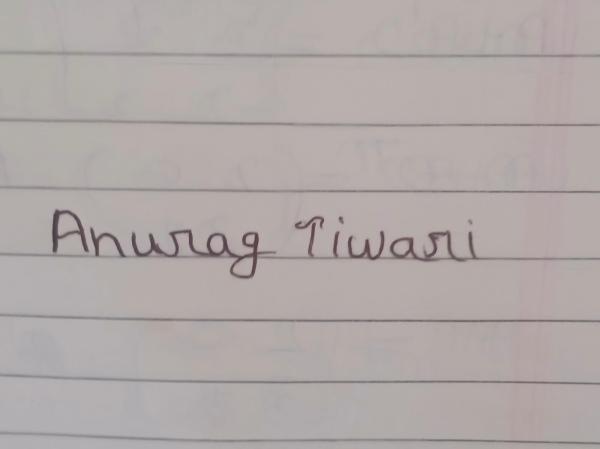 Anurag Tiwari